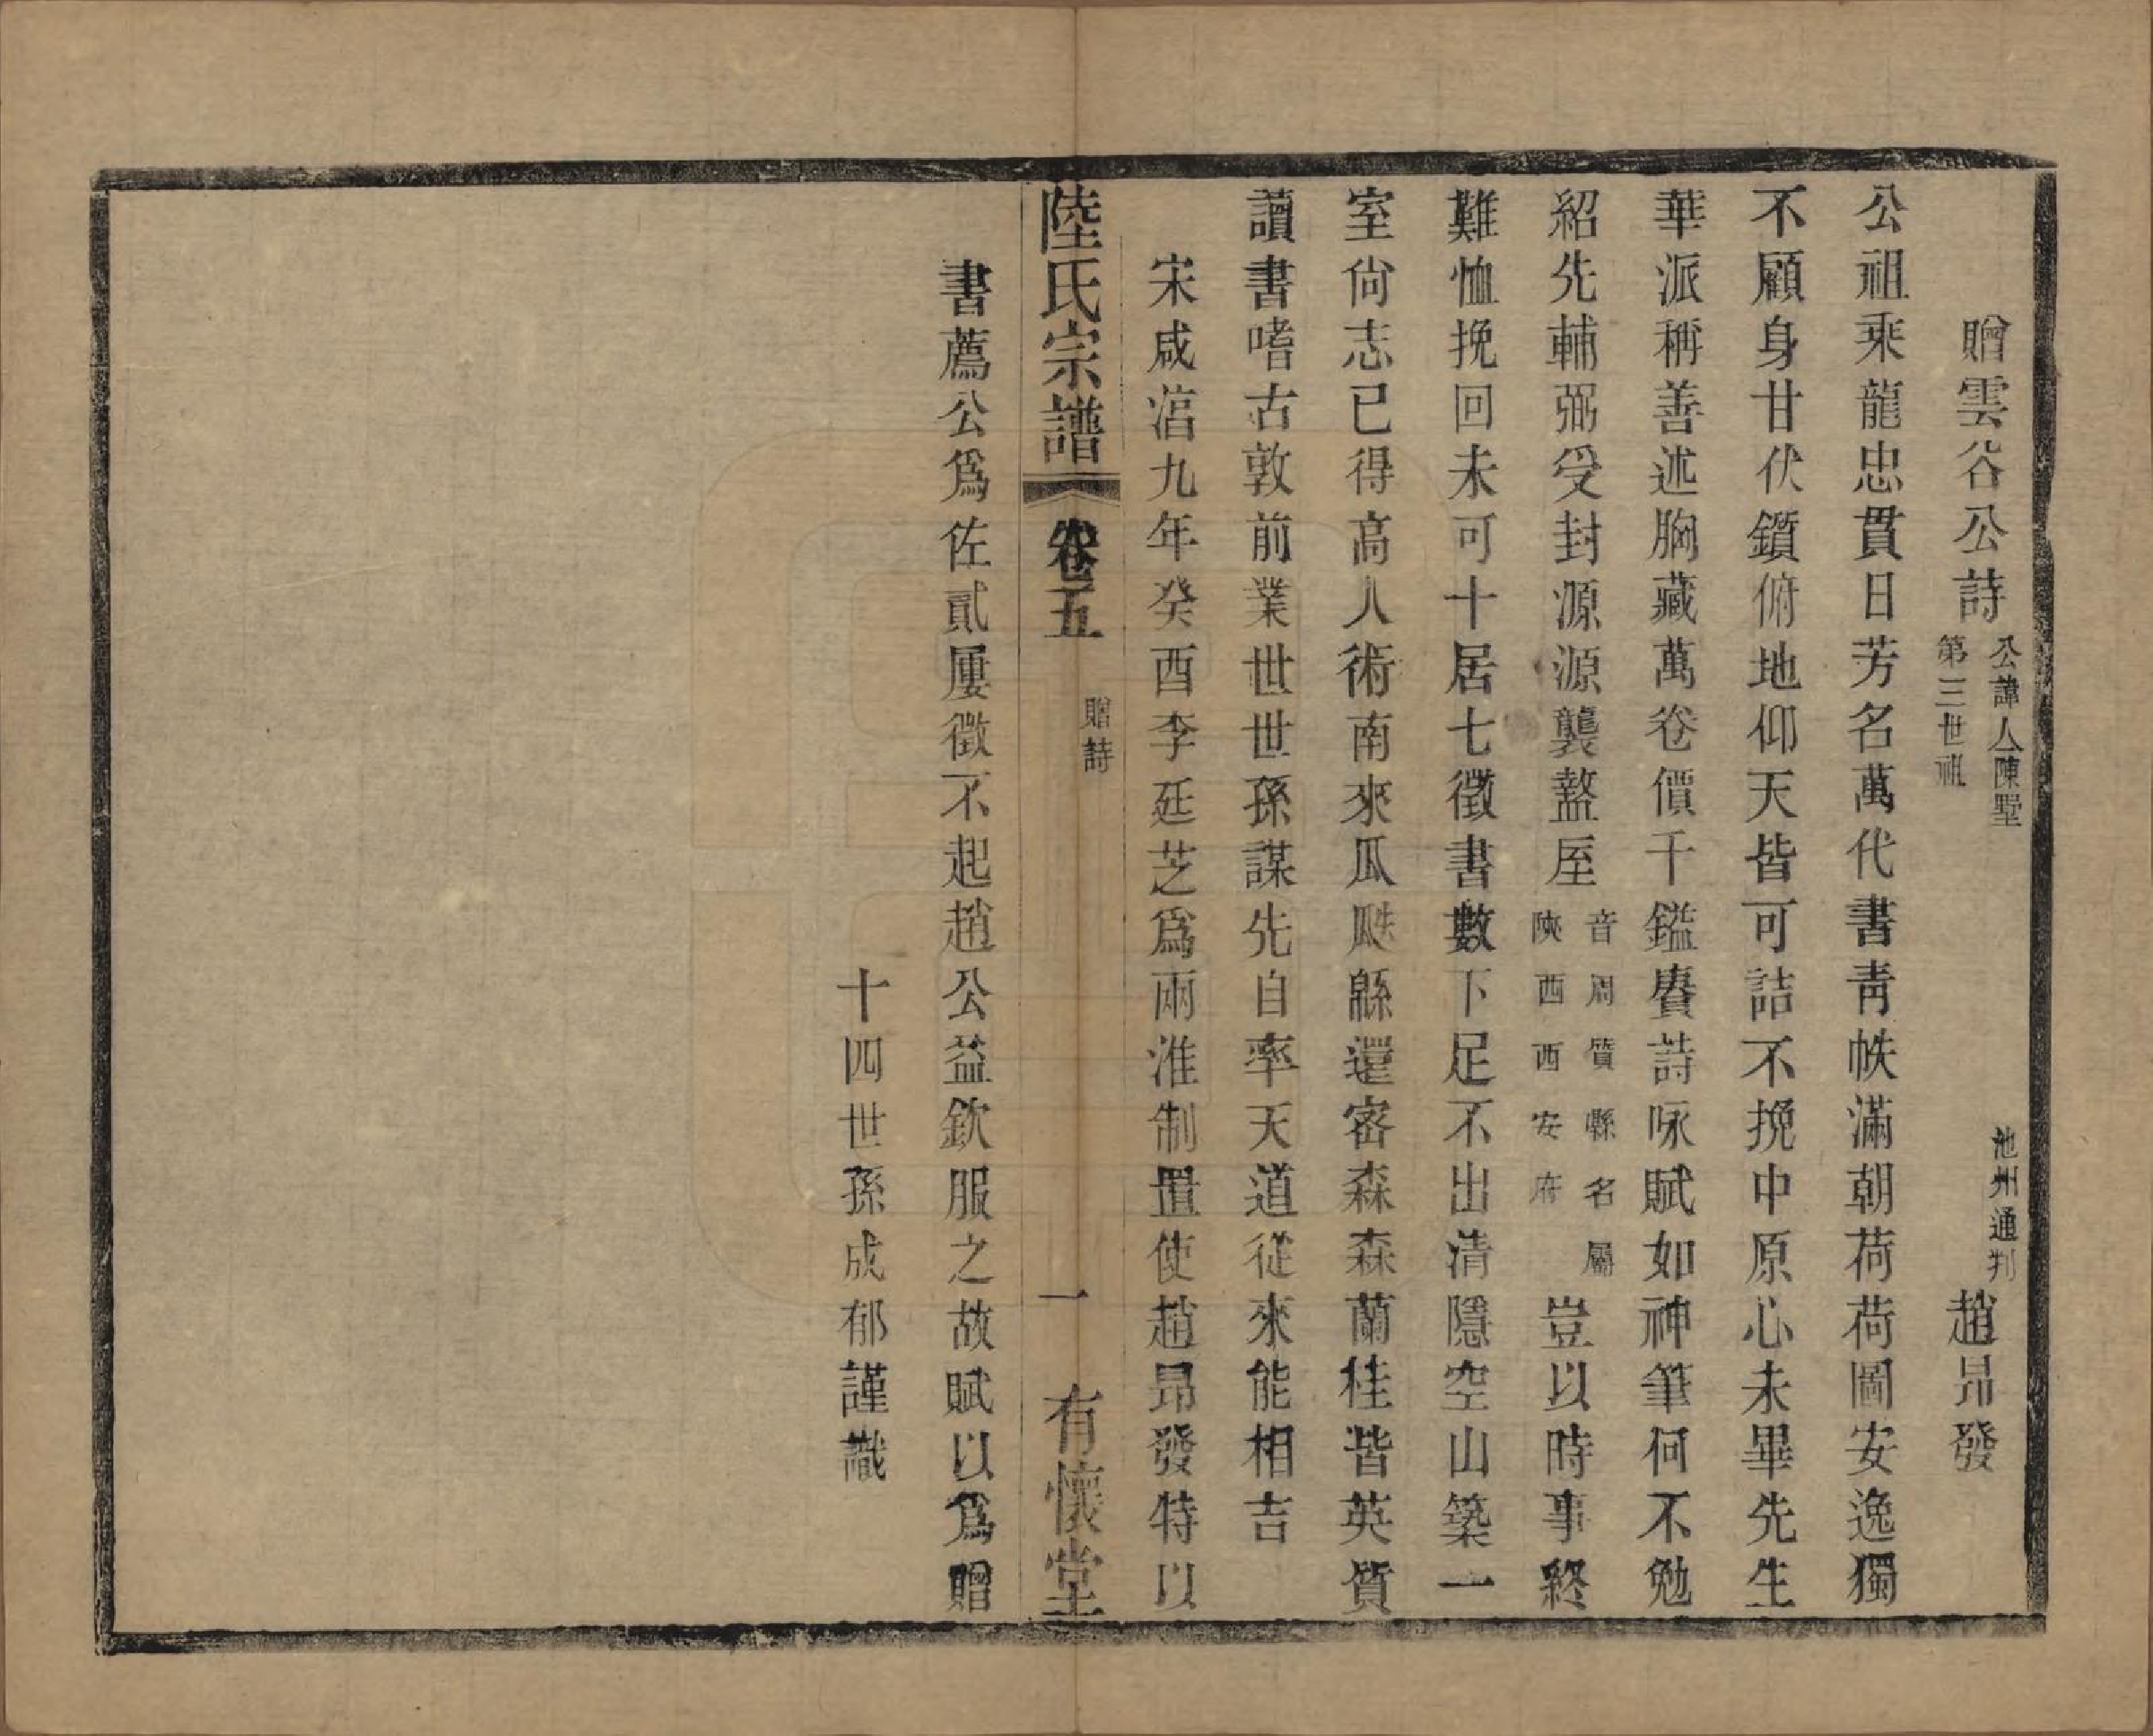 贈雲谷公詩 公諱人陳墅第三世祖 池州通判 趙昻發
公祖乘龍忠貫日芳名萬代書靑帙滿朝荷荷圖安逸獨
不顧身甘伏鑕俯地仰天皆可詰不挽中原心未畢先生
華派稱善述胸藏萬卷價千鎰賡詩咏賦如神筆何不勉
紹先輔弼受封源源襲盩厔 音周質縣名屬陝西西安府 豈以時事終
難恤挽回未可十居七徵書數下足不出淸隱空山築一
室尙志已得高人術南來瓜瓞緜還密森森蘭桂皆英質
讀書嗜古敦前業世世孫謀先自率天道從來能相吉
宋咸淳九年癸酉李廷芝爲兩淮制置使趙昻發特以
陸氏宗譜 卷五 贈詩 一 有懷堂
書薦公爲佐貳屢徵不起趙公益欽服之故賦以爲贈
十四世孫成郁謹識